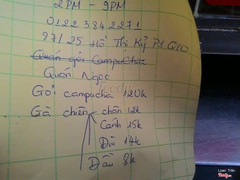 2PM - 9PM
0122 384 2271
87/25 Hồ Thị Kỷ P1 Q10
Quán gỏi Campuchia
Quán Ngọc
Gỏi campuchia 120k
Gà chiên chân 12k
Cánh 15k
Đùi 14k
Đầu 8k